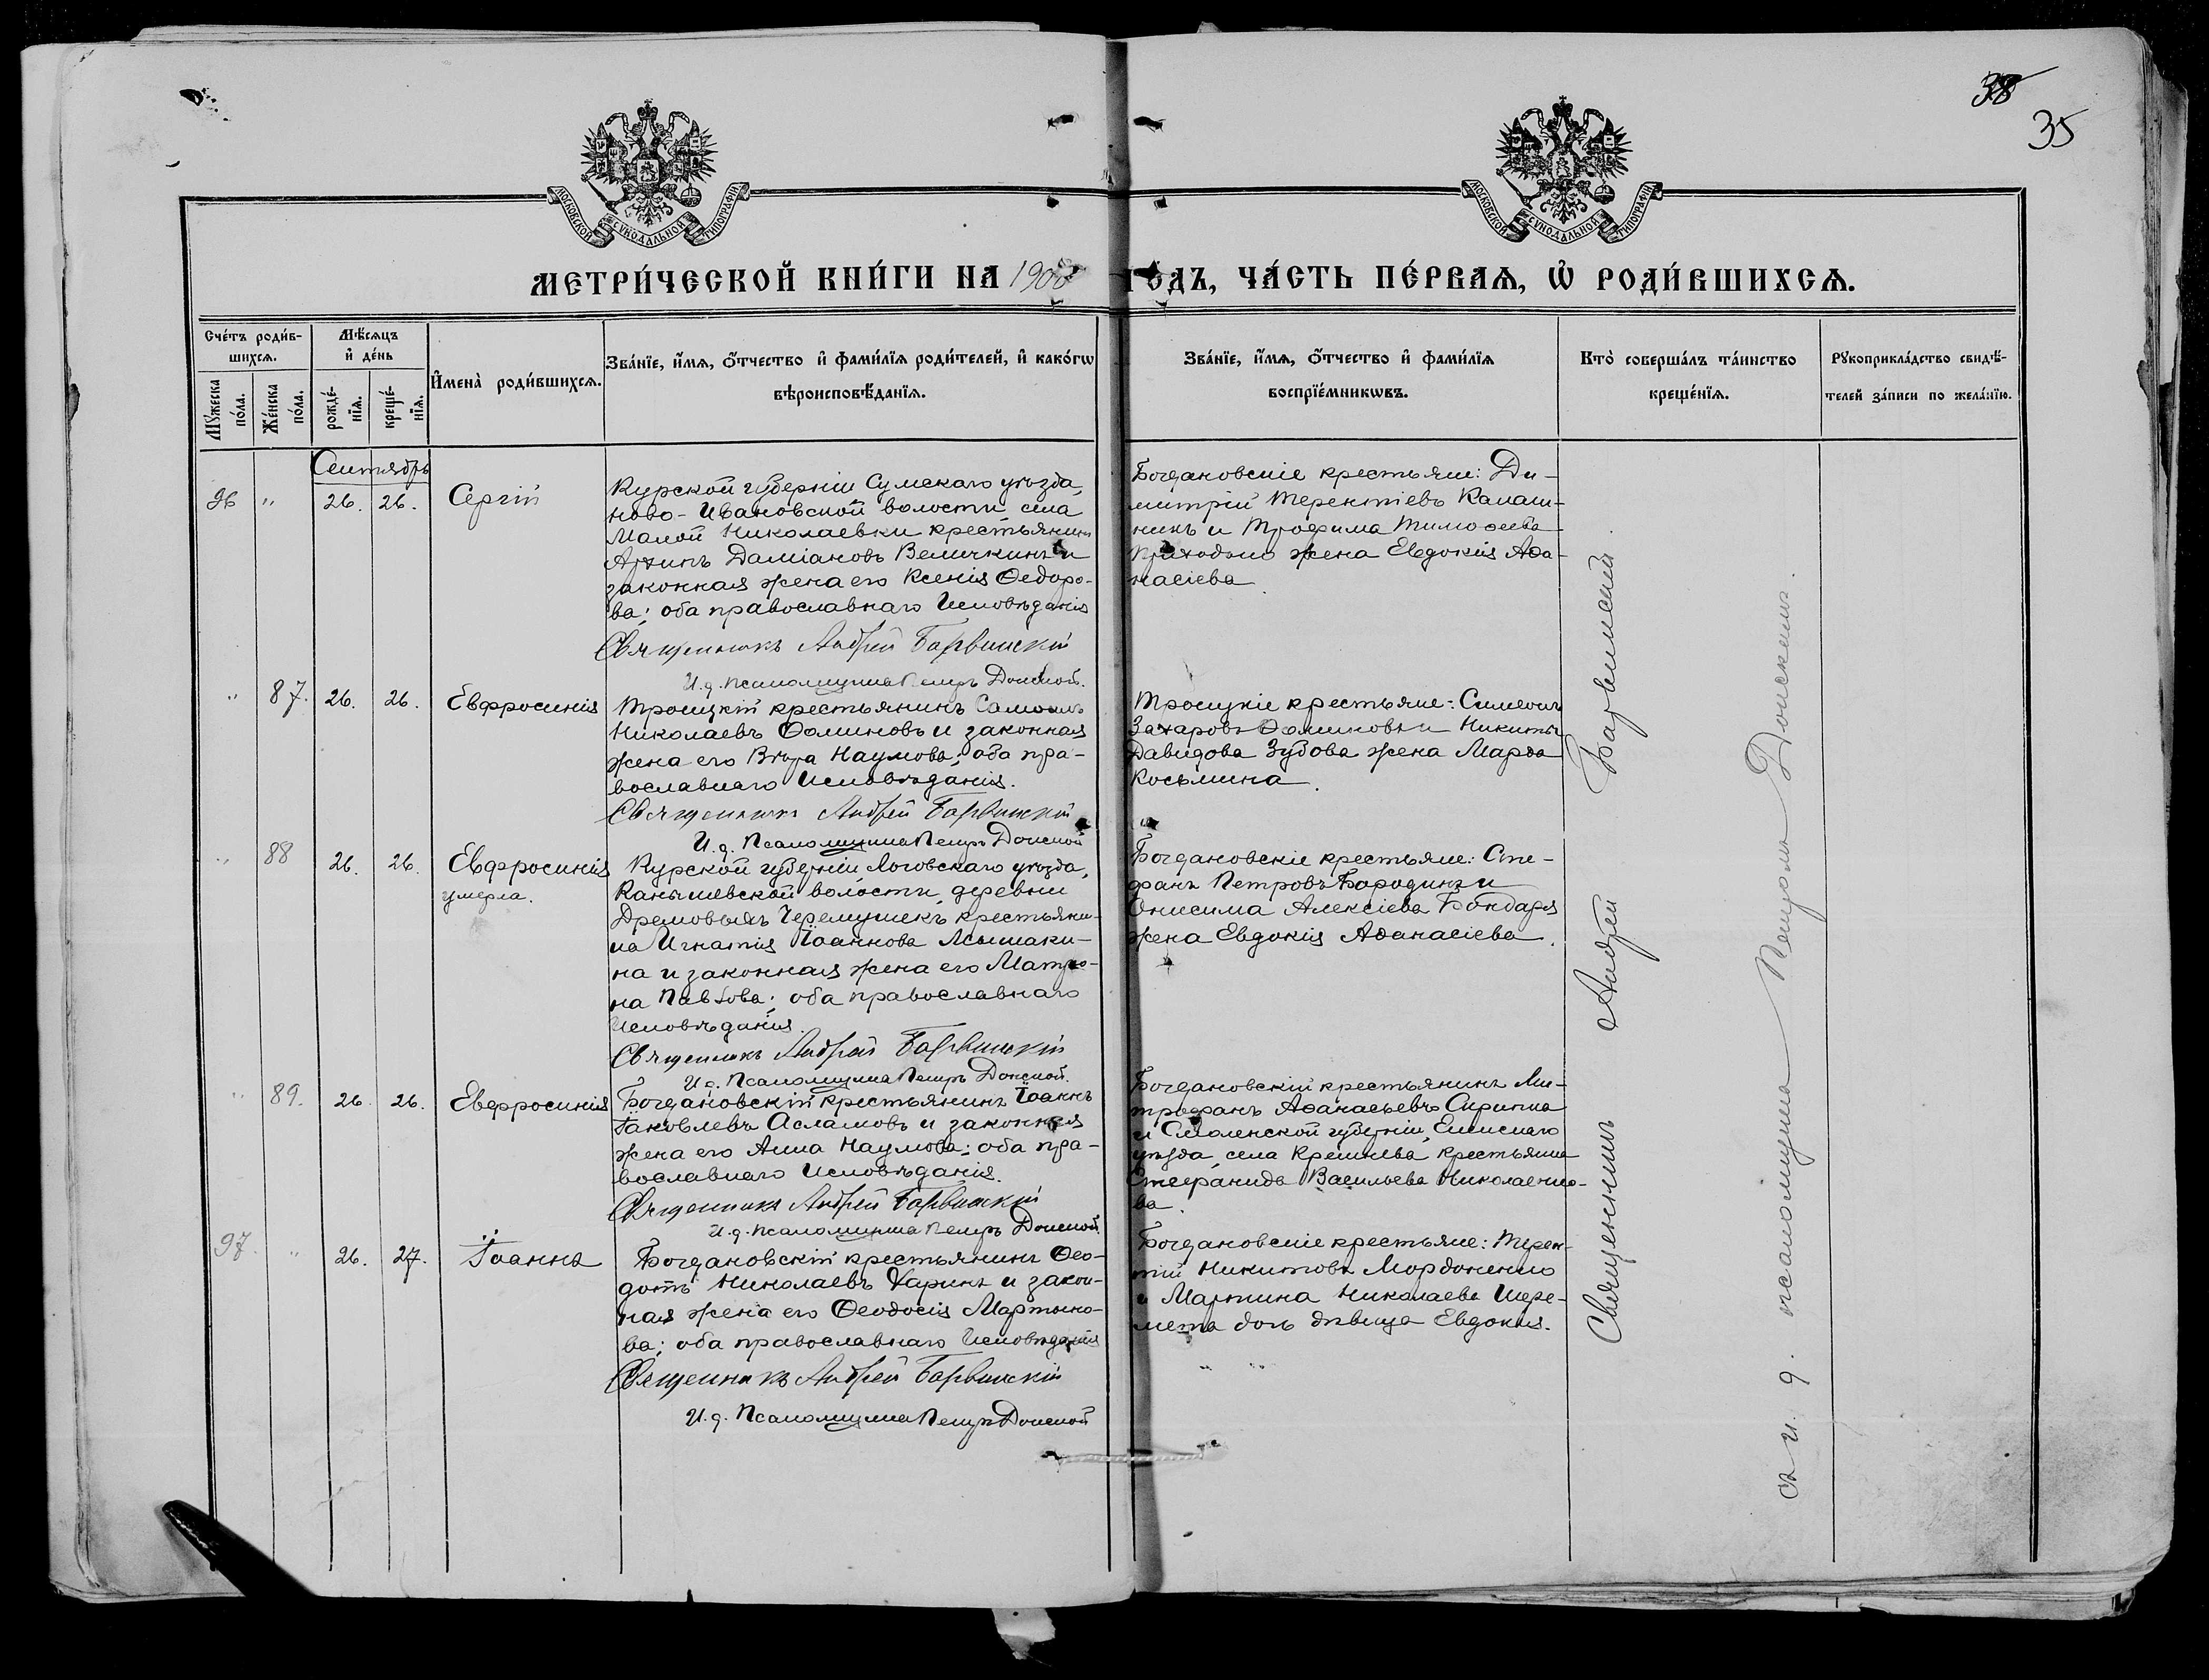 38
35
МОСКОВСКОЙ СѴНОДАЛЬНОЙ ТИПОГРАФІИ
МОСКОВСКОЙ СѴНОДАЛЬНОЙ ТИПОГРАФІИ
МЕТРИ́ЧЕСКОЙ КНИ́ГИ НА 1908 ГО́ДЪ, ЧА́СТЬ ПЕ́РВАѦ, Ѽ РОДИ́ВШИХСѦ.
Сче́тъ роди́в-
шихсѧ.
Мꙋ́жеска по́ла.
Же́нска по́ла.
Мѣ́сѧцъ
и҆ де́нь
рожде́-
нїѧ.
креще́-
нїѧ.
И҆мена̀ роди́вшихсѧ.
Зва́нїе, и҆́мѧ, ѻ҆́тчество и҆ фами́лїѧ роди́телей, и҆ како́гѡ
вѣроисповѣ́данїѧ.
Зва́нїе, и҆́мѧ, ѻ҆́тчество и҆ фами́лїѧ
воспрїе́мникѡвъ.
Кто̀ соверша́лъ та́инство
креще́нїѧ.
Рꙋкоприкла́дство свидѣ́-
телей за́писи по жела́нїю.
Сентябрь
96 " 26. 26. Сергій
Курской губерніи Сумскаго уѣзда,
Ново-Ивановской волости села
Малой Николаевки крестьянинъ
Даміановъ Величкинъ и
законная жена его Ксенія Ѳедоро-
ва; оба православнаго Исповѣданія
Священникъ Андрей Барвинскій
И. д. псаломщика Петръ Донской.
Богдановскіе крестьяне: Ди-
митрій Терентіевъ Калаш-
никъ и Трофима Тимоѳеева
Приходько жена Евдокія Аѳа-
насіева
" 87. 26. 26. Евфросинія
Троицкій крестьянинъ
Николаевъ Ѳоминовъ и законная
жена его Вѣра Наумова; оба пра-
вославнаго Исповѣданія.
Священникъ Андрей Барвинскій
И. д. Псаломщика Петръ Донской
Троицкіе крестьяне: Симеонъ
Захаровъ Ѳоминовъ и Никиты
Давидова Зубова жена Марѳа
Косьмина.
" 88 26. 26. Евфросинія
умерла.
Курской губерніи Логовскаго уѣзда,
Канышевской волости, деревни
Дремовыхъ Черемушекъ крестьяни-
на Игнатія Іоаннова
на и законная жена его Матро-
на Павлова; оба православнаго
Исповѣданія.
Священникъ Андрей Барвинскій
И. д. Псаломщика Петръ Донской.
Богдановскіе крестьяне: Сте-
фанъ Петровъ Бородинъ и
Онисима Алексіева Бондаря
жена Евдокія Аѳанасіева.
" 89. 26. 26. Евфросинія
Богдановскій крестьянинъ Іоаннъ
Іаковлевъ Асламовъ и законная
жена его Анна Наумова; оба пра-
вославнаго Исповѣданія.
Священникъ Андрей Барвинскій
И. д. псаломщика Петръ Донской.
Богдановскій крестьянинъ Ми-
трофанъ Аѳанасьевъ Скрипка
и Смоленской губерніи,
уѣзда, села крестьянка
Стефанида Васильева Николаенко-
ва.
97. " 26. 27. Іоаннъ
Богдановскій крестьянинъ Ѳео-
дотъ Николаевъ Харинъ и закон-
ная жена его Ѳеодосія Мартыно-
ва; оба православнаго Исповѣданія
Священникъ Андрей Барвинскій
И. д. Псаломщика Петръ Донской
Богдановскіе крестьяне: Терен-
тій Никитовъ Мордоненко
и Мартина Николаева Шере-
мета дочь дѣвица Евдокія.
Священникъ Андрей Барвинскій
съ и. д. псаломщика Петромъ Донскимъ.